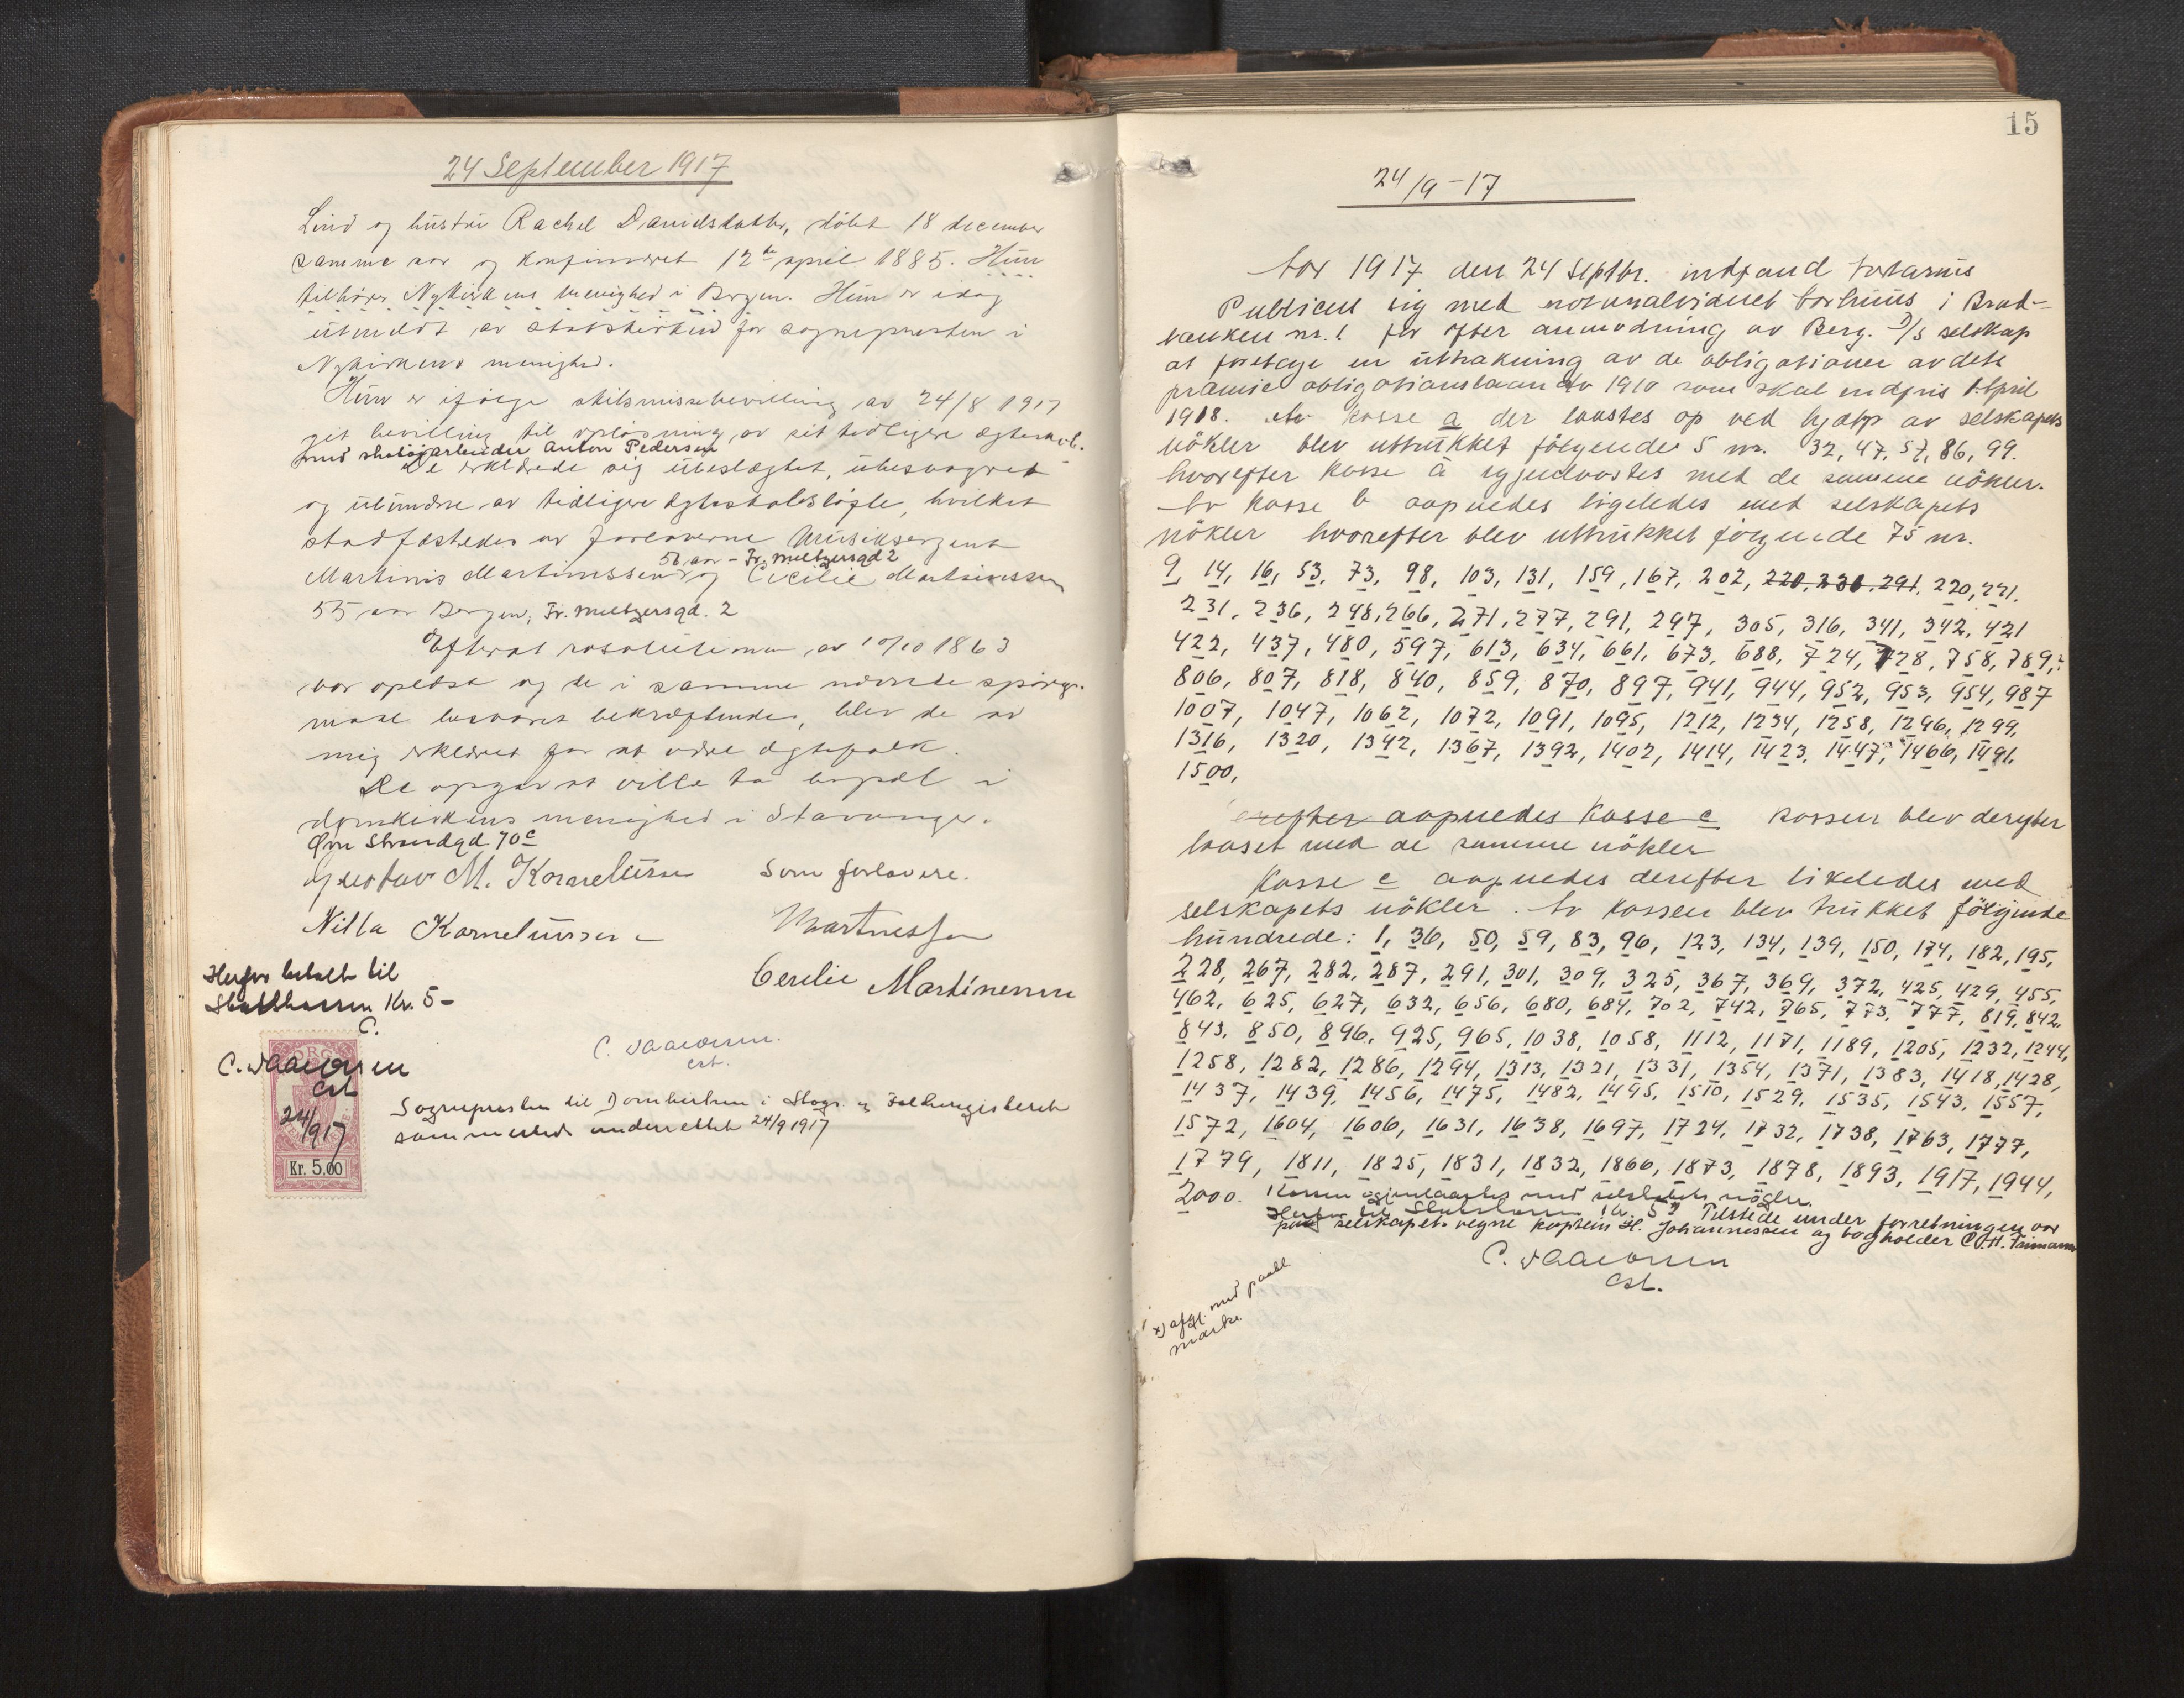 24 September 1917
Lind og hustru Rachel Davidsdatter, døbt 18 december
samme aar og konfirmeret 12te april 1885. Hun
tilhører Nykirkens menighed i Bergen. Hun er idag
utmeldt av statskirken for sognepresten i
Nykirkens menighed.
Hun er ifølge skilsmissebevilling av 24/8 1917
git bevilling til opløsning av sit tidligere egteskab.
med skotøiarbeider Anton Pedersen
De erklærede sig ubeslægtet, ubesvogret
og utundne av tidligere egteskabsløfte, hvilket
stadfæstedes av forloverne Musiksergent
56 aar - Fr. Meltzersgd 2
Martinus Martinussen og Cecilie Martinussen
55 aar Bergen, Fr. Meltzersgd. 2
Efterat resolutionen av 10/10 1863
var oplæst og de i samme nævnte spørgs-
maal besvaret bekræftende, blev de av
mig erklæret for at være egtefolk.
De opgav at ville ta bopæl i
domkirkens menighed i Stavanger.
Øvre Strandgd 70c
Gustav M. Kornelius Som forlovere.
Nilla Korneliussen Martinussen
Herfor betalt til
Statskassen Kr. 5-
Cecilie Martinussen
C.
C. Waaronsen
cst
24/9 17
Kr. 5.00
cst.
Sognepresten til Domkirken i Stvgr. og Folkeregisteret
sammesteds underrettet 24/9 1917
15
24/9-17
Aar 1917 den 24 Septbr. indfand Notarius
Publicus sig med notarialvidnet Aarhuus i Brad-
bænken nr. 1 for efter anmodning av Berg. D/S selskap
at foretage en uttrækning av de obligationer av dets
præmie obligationslaan av 1910 som skal indfris 1 April
1918. Av kasse a der laastes op ved hjælp av selskapets
nökler blev uttrukket fölgende 5 nr. 32, 47, 57, 86, 99.
hvorefter kasse a igjenlaastes med de samme nökler.
Av kasse b aapnedes ligeledes med selskapets
nökler hvorefter blev uttrukket fölgende 75 nr.
9, 14, 16, 53, 73, 98, 103, 131, 159, 167, 202, 220, 230, 291, 220, 221.
231, 236, 248, 266, 271, 277, 291, 297, 305, 316, 341, 342, 421
422, 437, 480, 597, 613, 634, 661, 673, 688, 724, 728, 758, 789,
806, 807, 818, 840, 859, 870, 897, 941, 944, 952, 953, 954, 987
1007, 1047, 1062, 1072, 1091, 1095, 1212, 1234, 1258, 1296, 1299,
1316, 1320, 1342, 1367, 1392, 1402, 1414, 1423, 1447, 1466, 1491.
1500,
erefter aapnedes kasse c kassen blev derefter
laaset med de samme nökler
Kasse c aapnedes derefter likeledes med
selskapets nökler. Av kassen blev trukket fölgende
hundrede: 1, 36, 50, 59, 83, 96, 123, 134, 139, 150, 174, 182, 195,
228, 267, 282, 287, 291, 301, 309, 325, 367, 369, 372, 425, 429, 455,
462, 625, 627, 632, 656, 680, 684, 702, 742, 765, 773, 777, 819, 842,
843, 850, 896, 925, 965, 1038, 1058, 1112, 1171, 1189, 1205, 1232, 1244,
1258, 1282, 1286, 1294, 1313, 1321, 1331, 1354, 1371, 1383, 1418, 1428,
1437, 1439, 1456, 1475, 1482, 1495, 1510, 1529, 1535, 1543, 1557,
1572, 1604, 1606, 1631, 1638, 1697, 1724, 1732, 1738, 1763, 1777,
1779, 1811, 1825, 1831, 1832, 1866, 1873, 1878, 1893, 1917, 1944,
2000. Kassen igjenlaastes med selskabets nøgler.
Herfor til Statskassen Kr. 5 Tilstede under forretningen var
paa selskapets vegne kaptein H. Johannessen og bogholder C. H.
cst.
x) med paakl.
marke